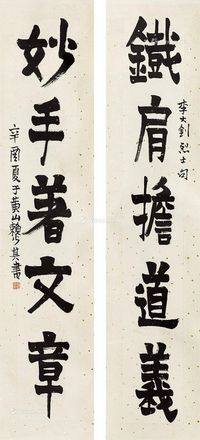 鐵肩擔道義
李大釗烈士句
妙手著文章
辛酉夏于黄山賴少其書